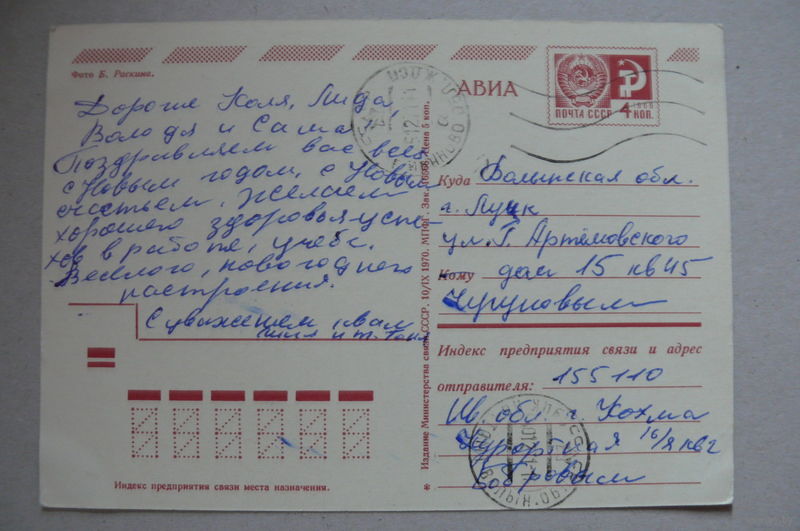 Фото Б. Раскина.
Дорогие Коля, Лида,
Володя и Саша
Поздравляем вас всех
с Новым годом, с Новым
счастьем, желаем
хорошего здоровья, успе-
хов в работе, учебе.
Веселого, новогоднего
настроения.
С уважением к вам
и т. Таня
Индекс предприятия связи места назначения.
Издание Министерства связи СССР. 10/IX 1970. МПФГ. Зак. Цена 5 коп.
АВИА
ПОЧТА СССР
1966
4 КОП.
Куда Волынская обл.
г. Луцк
ул. Г. Артёмовского
Кому дом 15 кв 45
Чугуновым
Индекс предприятия связи и адрес
отправителя: 155110
Ив обл г. Кохма
Курортная 16/8 кв 2
Бобровым